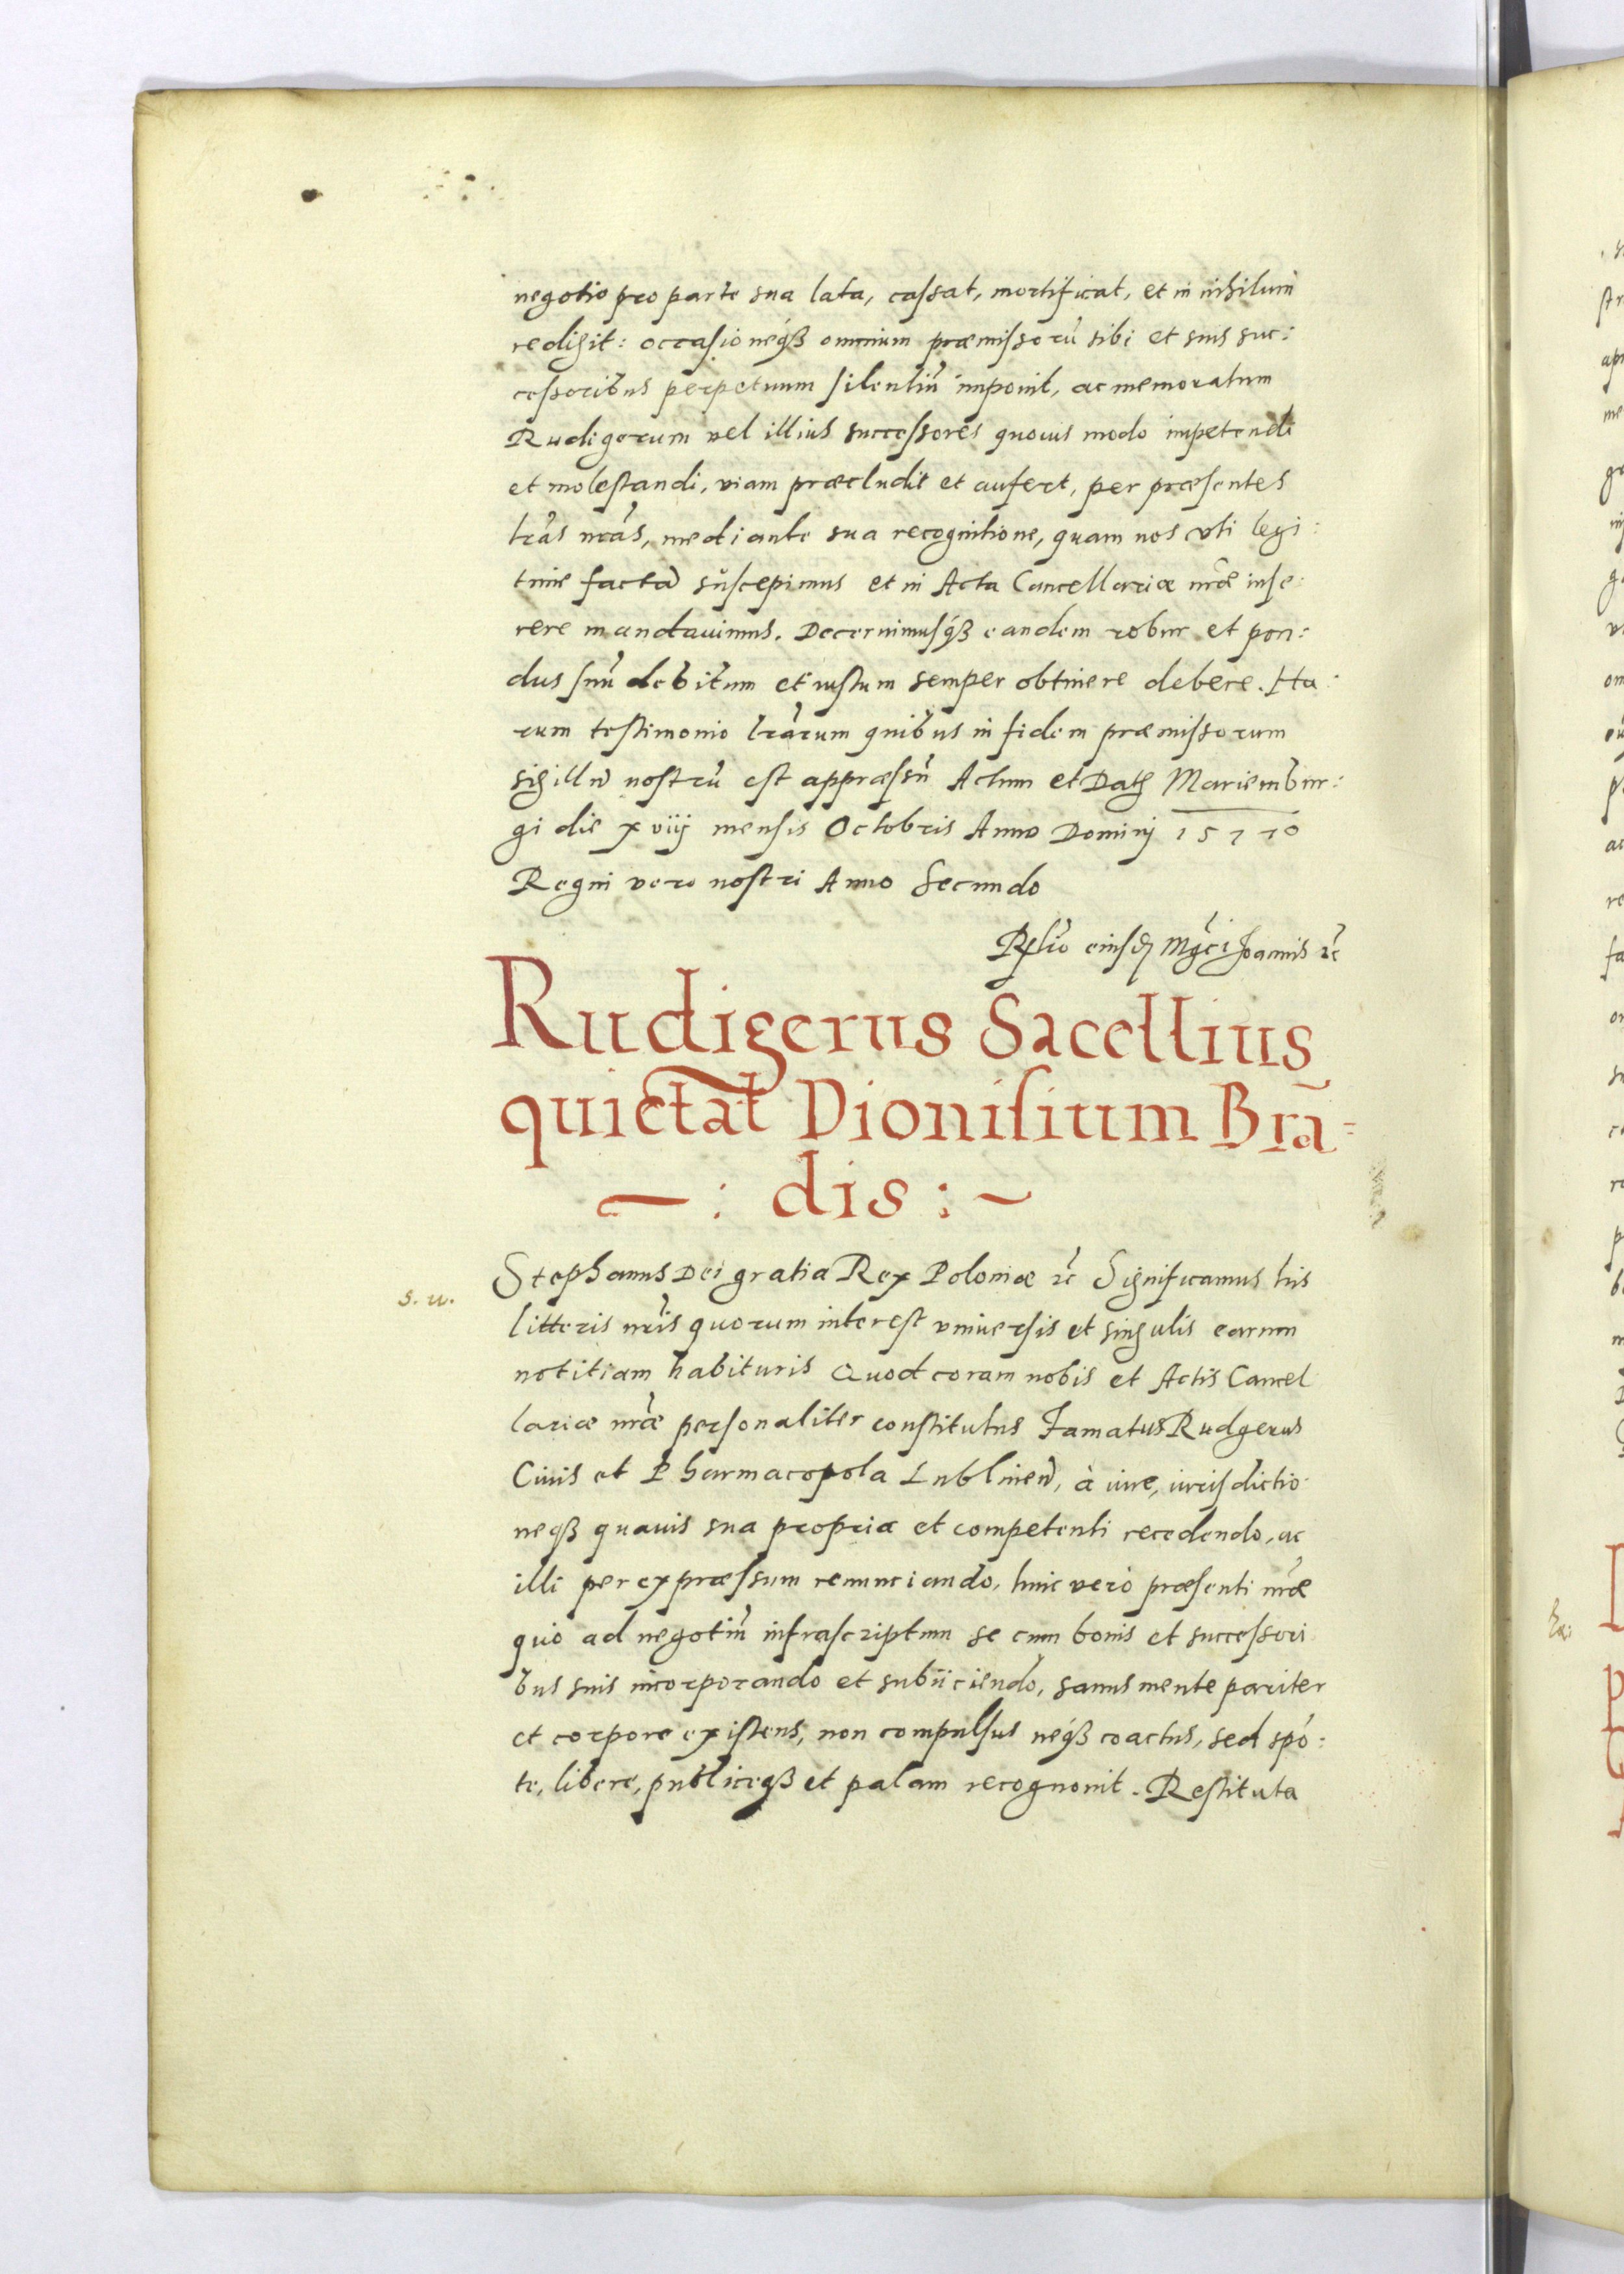 negotio pro parte sua lata, cassat, mortificat, et in nihilum
redigit: occasioneqß omnium præmissorū sibi et suis suc:
cessoribus perpetuum silentiū imponit, ac memoratum
Rudigerum vel illius successores quouis modo impetendi
et molestandi, viam præcludit et aufert, per præsentes
lrãs nrãs, mediante sua recognitione, quam nos vti legi:
time factã suscepimus et in Acta Cancellariæ nrãe inse:
rere mandauimus. Decernimusqß eandem robur et pon:
dus suū debitum et iustum semper obtinere debere. Ha:
rum testimonio lrãrum quibus in fidem præmissorum
sigillū nostrū est appræssū Actum et Datȝ Mariembur:
gi die xviij mensis Octobris Anno Dominj 15770
Regni vero nostri Anno Secundo
Rlõ eiusdȝ Mgci Joannis ꝛc
Rudigerus Sacellius
quietat Dionisium Brã=
—: dis :~
Stephanus Dei gratia Rex Poloniæ ꝛc Significamus his
s. u.
litteris nrĩs quorum interest vniuersis et singulis earum
notitiam habituris Quod coram nobis et Actis Cancel
lariæ nrãe personaliter constitutus Famatus Rudgerus
Ciuis et Pharmacopola Lublineñ, à iure, iurisdictio
neqß quauis sua propria et competenti recedendo, ac
illi per expræssum renunciando, huic verò præsenti nrãe
quo ad negotiū infrascriptum se cum bonis et successori
bus suis incorporando et subiiciendo, sanus mente pariter
et corpore existens, non compulsus neqß coactus, sed spõ:
te, libere, publiceqß et palam recognouit. Restituta